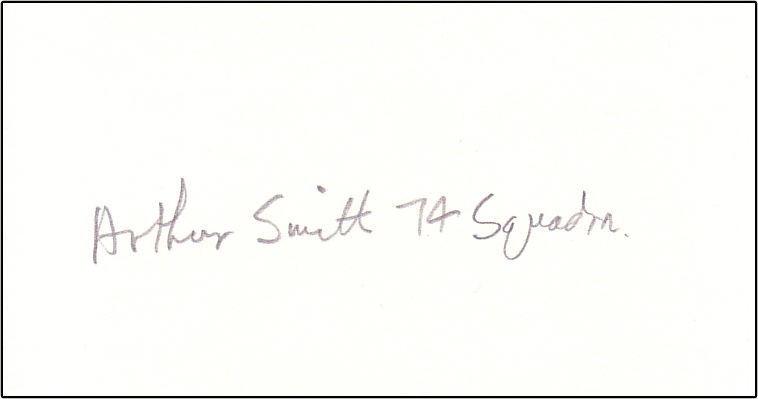 Arthur Smith 74 Squadron.